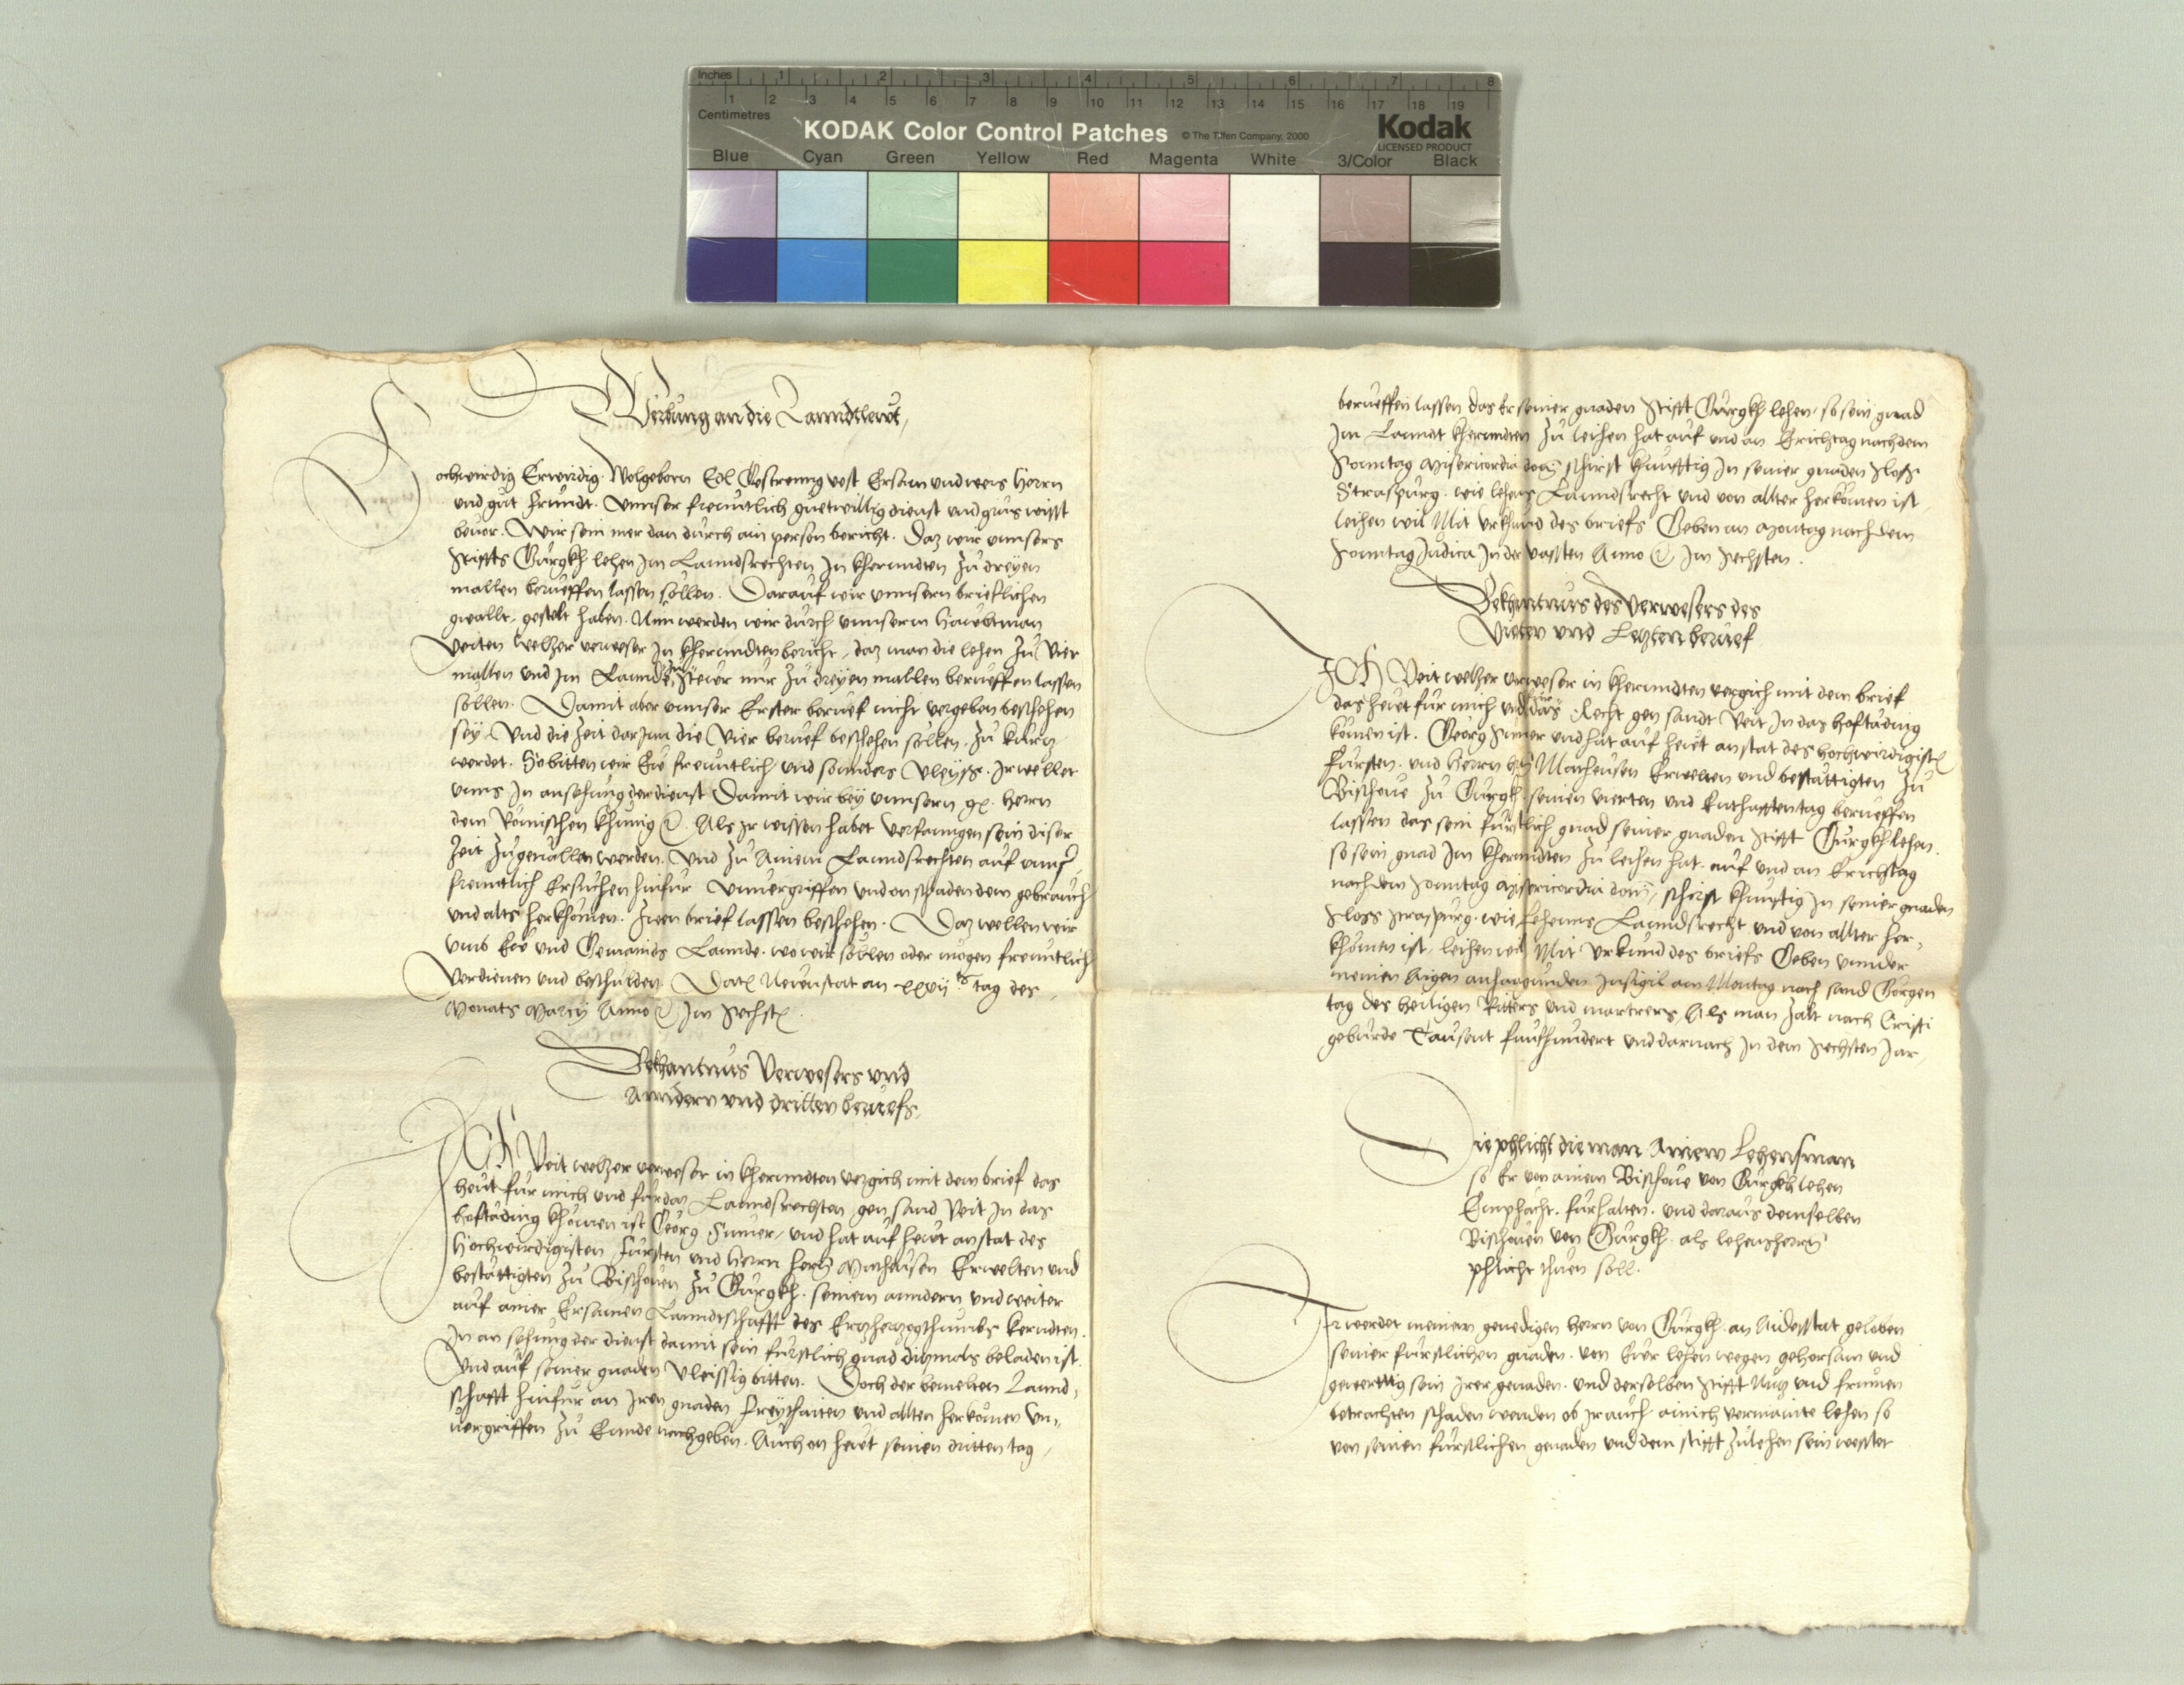 Inches 1 2 3 4 5 6 7 8
1 2 3 4 5 6 7 8 9 10 11 12 13 14 15 16 17 18 19
Centimetres
KODAK Color Control Patches © The Tiffen Company, 2000 Kodak
LICENSED PRODUCT
Blue Cyan Green Yellow Red Magenta White 3/Color Black
Werbung an die Lanndtlewt,
Hochwirdig Erwirdig Wolgeborn Edl Gestreung vest Ersam und weis Herrn
und gut freundt. Unnser freuntlich guetwillig dienst und grus wisst
bevor. Wir sein mer dan durch ain person bericht. Daz wir unnsers
Stiffts Gurgkh lehen Im Lanndsrechten In khernndten zu dreyen
mallen berueffen lassen sollen. Darauf wir unnsern brieflichen
gwallt gestelt haben. Nun werden wir durch unnserm Haubtman
Veiten welzer verweser In khernndten bericht, daz man die lehen zu Vier
mallen und Im Lannde In Steir nur zu dreyen mallen berueffen lassen
sollen. Damit aber unnser Erster beruef nicht vergeben beschehen
sey. Und die Zeit darjnn die Vier beruef beschehen sollen. zu kurtz
werdet. So bitten wir Ew freuntlich und sonnders Vleyss. Ir wellet
unns In ansehung der dienst Damit wir bey unnserm g. herrn
dem Romischen khunig etc. Als Ir wissen habet Verfanngen sein diser
Zeit zugevallen werden. Und zu Ainem Lanndsrechten auf unnser
freuntlich Ersuchen hinfur Unvergriffen und on schaden dem gebrauch
und alts herkhomen. Zwen brief lassen beschehen. Daz wellen wir
umb Ew und Gemainds Lannde. wo wir sollen oder mogen freuntlich
Verdienen und beschulden. Dat Newenstat an xxvij tag des
Monats Marcy Anno etc Im Sechst
Bekhantnus Verwesers und
Anndern und dritten beruefs.
ICH Veit welzer verweser in khernndten vergich mit dem brief das
heut fur mich und fur dan Lanndsrechten, gen sand Veit In das
hoftading khomen ist Georg Sumer, und hat auf heut anstat des
Hochwirdigisten Fursten und herrn hern Matheusen Erwelten und
bestattigten zu Bischoven zu Gurgkh. seinem anndern und weiter
auf ainer Ersamen Lanndtschafft des Ertzhertzogthumbs kerndten.
In ansehung der dienst damit sein furstlich gnad ditzmals beladen ist.
Und auf seiner gnaden Vleissig bitten. Doch der bemelten Lannd-
schafft hinfur an Iren gnaden freythaiten und allten herkomen Un-
vergriffen zu Ennde nachgeben. Auch on heut seinen dritten tag,
berueffen lassen das Er seiner gnaden Stifft Gurgkh lehen, so sein gnad
Im Lanndt khernndten zu leihen hat auf und an Erichtag nach dem
Sonntag Misericordia dom schirst khunfftig In seiner gnaden Sloss
Straspurg. wie lehens Lanndsrecht und von allter herkomen ist,
leihen will Mit Urkhund des briefs Geben an Montag nach dem
Sonntag Judica In der Vassten Anno etc Im Sechsten.
Bekhantnus des Verwesers des
Vierten und Letzten beruef
ICH Veit welzer verweser in khernndten vergich mit dem brief
das heut fur mich und fur das Recht gen sandt Veit In das hoftading
komen ist. Georg Sumer und hat auf heut anstat des hochwirdigist
Fursten. und herrn hern Matheusen Erwelten und bestattigten zu
Bischove zu Gurgkh. seinen vierten und Enthafften tag berueffen
lassen das sein furstlich gnad seiner gnaden Stifft Gurgkh lehen.
so sein gnad Im khernndten zu leihen hat. auf und an Erichtag
nach dem Sonntag Misericordia dom, schirst khunftig In seiner gnaden
Sloss Straspurg. wie lehenns Lanndsrecht und von allter her-
khomen ist, leihen well Mit Urkund des briefs Geben unnder
meinen Aigen anhangunden Insigil am Montag nach sand Gorgen
tag des heiligen Ritters und martrers, Als man zalt nach Cristi
geburde Tausent funfhundert und darnach In dem Sechsten Jar,
Die phlicht die man Ainem Lehensman
so Er von ainem Bischove von Gurgkh lehen
Emphacht. furhalten. und daraus demselben
Bischoven von Gurgkh. als lehensherrn
phlicht thuen soll.
Ir werdet meinem genedigen herrn von Gurgkh. an Aidesstat geloben
seiner furstlichen gnaden. von Eur lehen wegen gehorsam und
gewerttig sein Irer genaden. und derselben Stifft Nutz und frumen
betrachten schaden wenden ob Ir auch ainich vermainte lehen so
von seinen furstlichen genaden und dem stifft zulehen sein wesstet